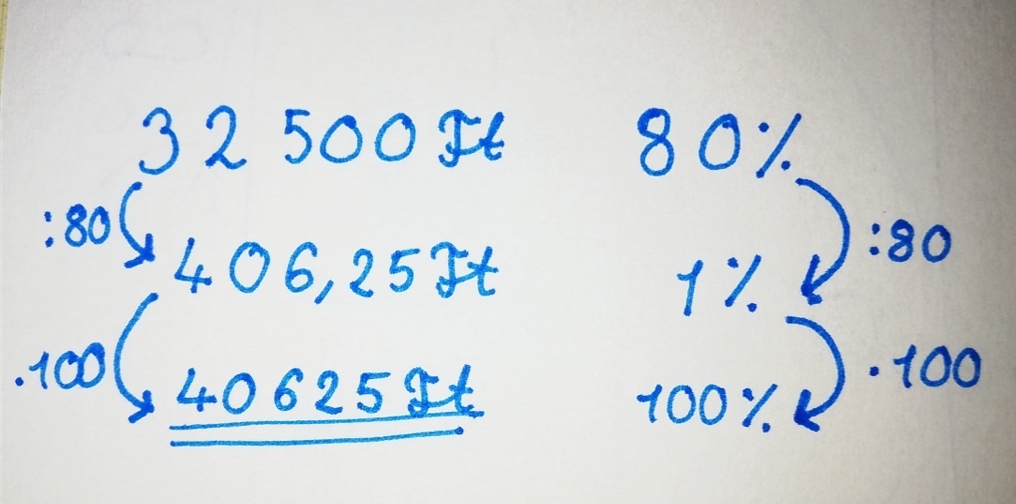 32 500 Ft 80%
:80 :80
406,25 Ft 1%
.100 .100
40625 Ft 100%